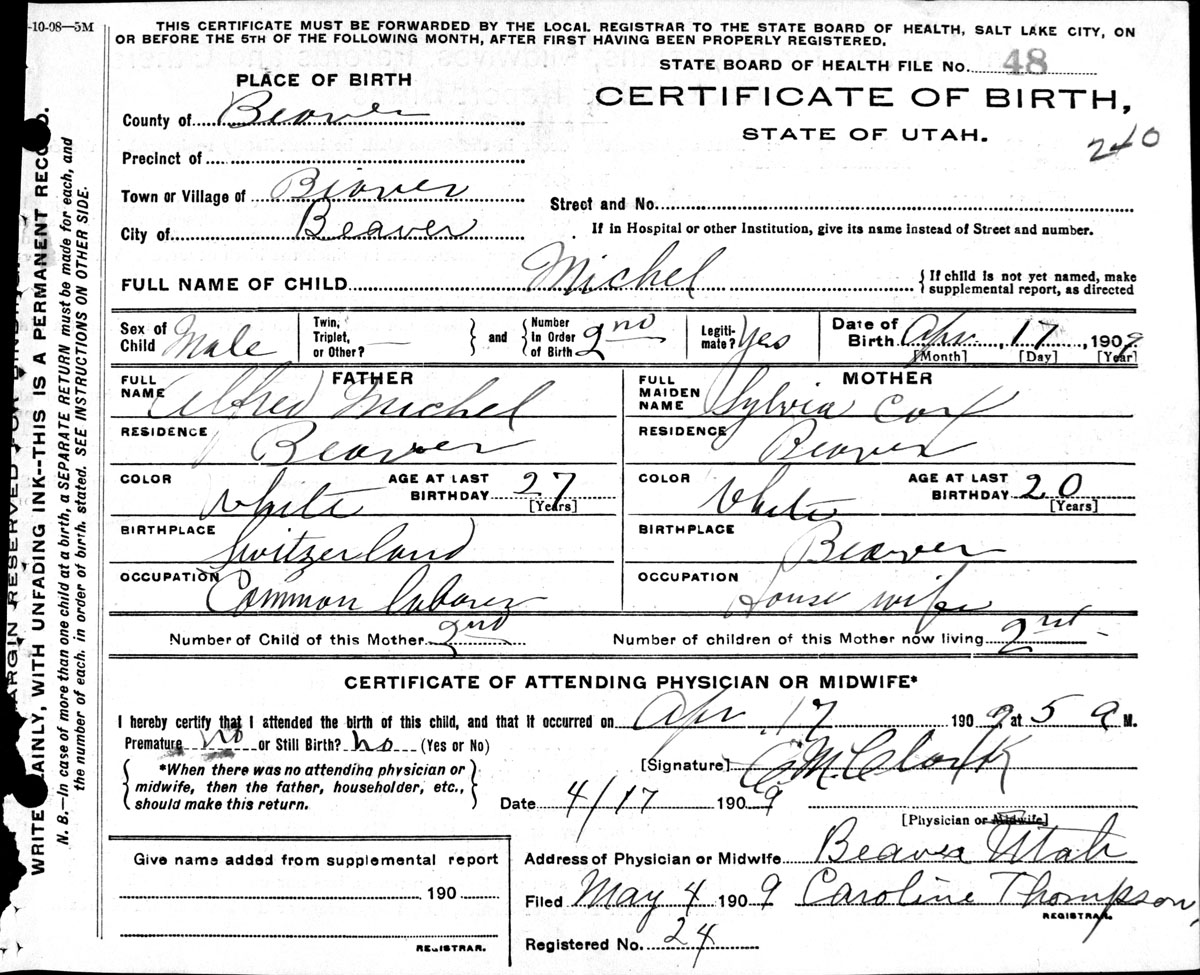 -10-08—5M
THIS CERTIFICATE MUST BE FORWARDED BY THE LOCAL REGISTRAR TO THE STATE BOARD OF HEALTH, SALT LAKE CITY, ON
OR BEFORE THE 5TH OF THE FOLLOWING MONTH, AFTER FIRST HAVING BEEN PROPERLY REGISTERED.
STATE BOARD OF HEALTH FILE No. 48
PLACE OF BIRTH
CERTIFICATE OF BIRTH,
STATE OF UTAH.
240
County of Beaver
Precinct of
Town or Village of Beaver
Street and No.
City of Beaver
If in Hospital or other Institution, give its name instead of Street and number.
FULL NAME OF CHILD Michel {If child is not yet named, make supplemental report, as directed
Sex of Child Male Twin, Triplet, or Other? — } and { Number in Order of Birth 2nd Legiti-mate? Yes Date of Birth Apr. 17, 1909
[Month] [Day] [Year]
FATHER MOTHER
FULL NAME Alfred Michel FULL MAIDEN NAME Sylvia Cox
RESIDENCE Beaver RESIDENCE Beaver
COLOR White AGE AT LAST BIRTHDAY 27 [Years] COLOR White AGE AT LAST BIRTHDAY 20 [Years]
BIRTHPLACE Switzerland BIRTHPLACE Beaver
OCCUPATION Common laborer OCCUPATION House wife
Number of Child of this Mother 2nd Number of children of this Mother now living 2nd
CERTIFICATE OF ATTENDING PHYSICIAN OR MIDWIFE*
I hereby certify that I attended the birth of this child, and that it occurred on Apr 17 1909, at 5 a M.
Premature no or Still Birth? no (Yes or No)
{ *When there was no attending physician or midwife, then the father, householder, etc., should make this return. }
[Signature] C M Clark
Date 4/17 1909
[Physician or Midwife]
Give name added from supplemental report
190
REGISTRAR.
Address of Physician or Midwife Beaver Utah
Filed May 4 1909 Caroline Thompson,
REGISTRAR.
Registered No. 24
ARGIN RESERVED FOR BINDI
WRITE AINLY, WITH UNFADING INK--THIS IS A PERMANENT RECO D.
N. B.—In case of more than one child at a birth, a SEPARATE RETURN must be made for each, and
the number of each, in order of birth, stated. SEE INSTRUCTIONS ON OTHER SIDE.